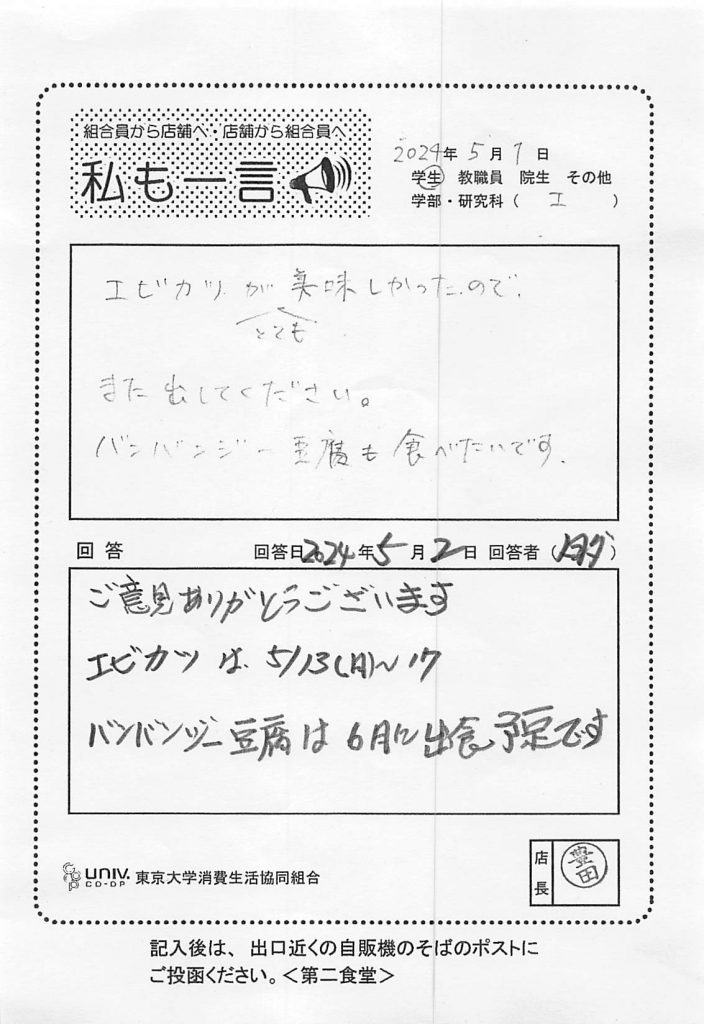 組合員から店舗へ・店舗から組合員へ
私も一言
2024年 5月 1日
学生 教職員 院生 その他
学部・研究科（ 工 ）
エビカツが美味しかったので、
とても
また出してください。
バンバンジー豆腐も食べたいです.
回答 回答日2024年5月2日 回答者（ ）
ご意見ありがとうございます
エビカツは、5/13(月)〜17
バンバンジー豆腐は6月に出食予定です
UNIV. CO-OP 東京大学消費生活協同組合
店長 豊田
記入後は、出口近くの自販機のそばのポストに
ご投函ください。＜第二食堂＞